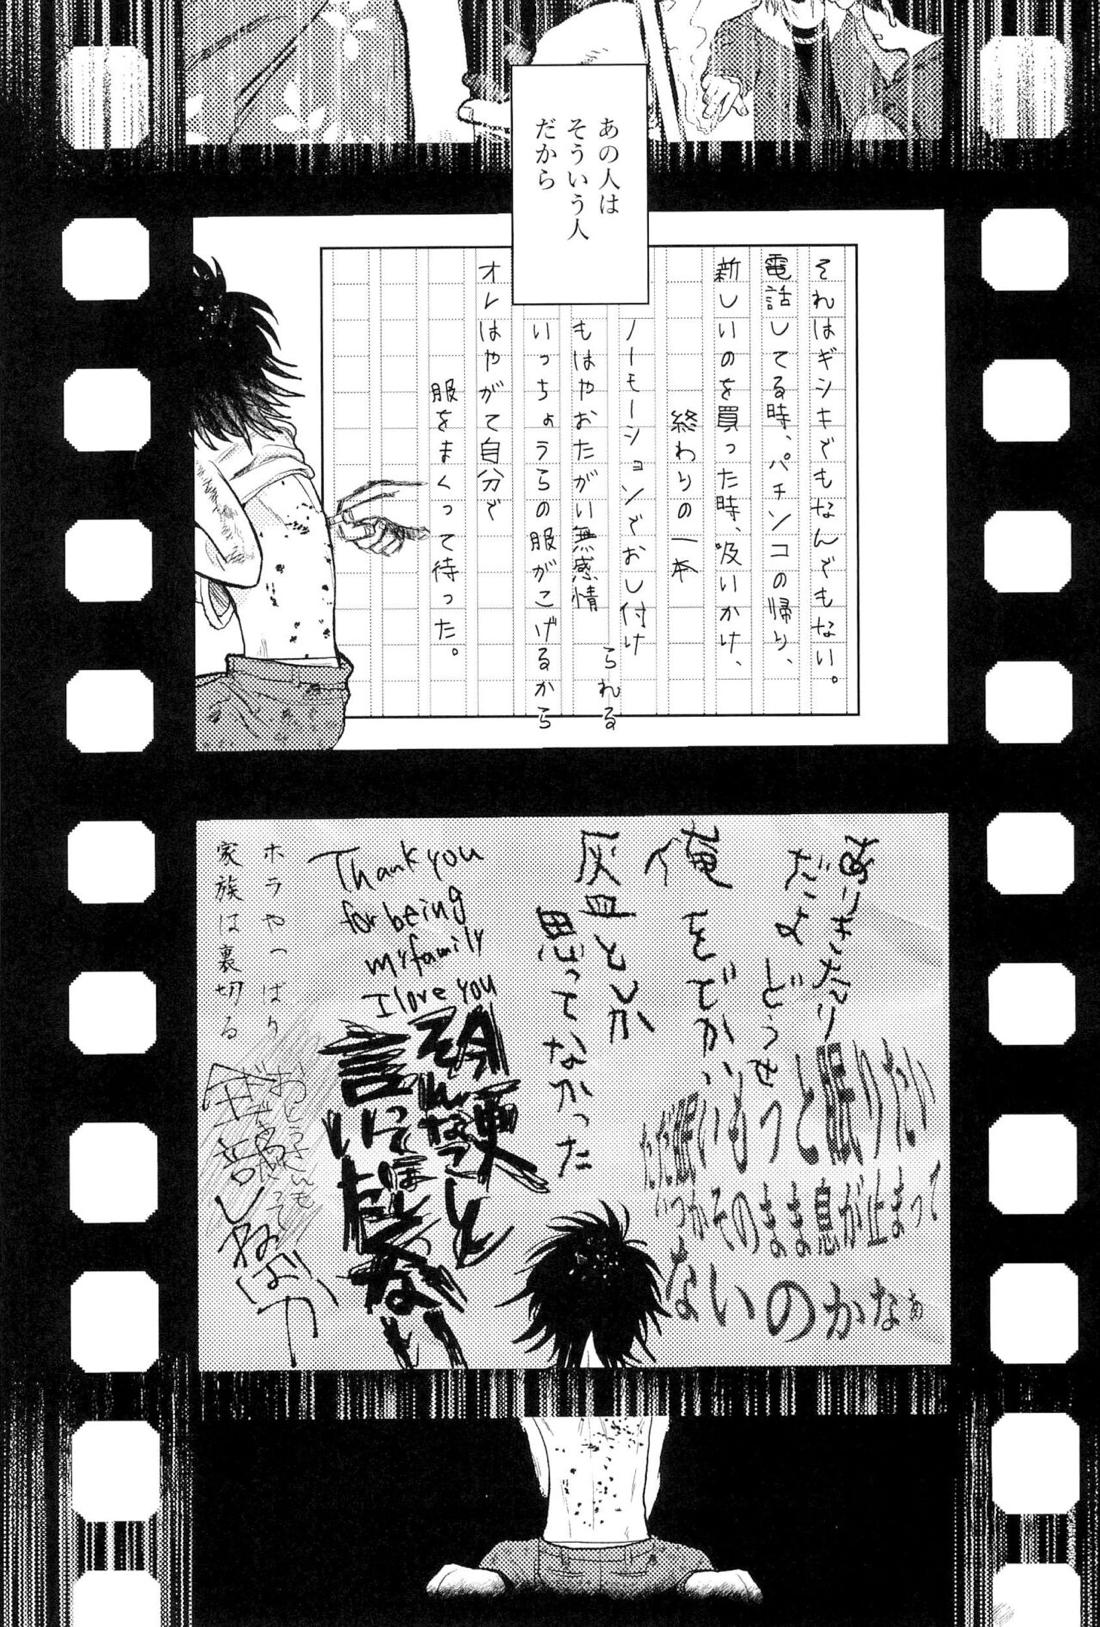 あの人は
そういう人
だから
それはギシキでもなんでもない。
電話してる時、パチンコの帰り、
新しいのを買った時、吸いかけ、
終わりの一本
ノーモーションでおし付け
られる
もはやおたがい無感情
いっちょうらの服がこげるから
オレはやがて自分で
服をまくって待った。
ありきたり
だよ どうせ
俺をでかい
灰皿とか
思ってなかった
ただ眠いもっと眠りたい
いつかそのまま息が止まって
ないのかなぁ
Thank you
for being
my family
I love you
今更
そんなこと
言ってほしく
なかった
ホラやっぱり
家族は裏切る
おとうさんも
全部しねばカ